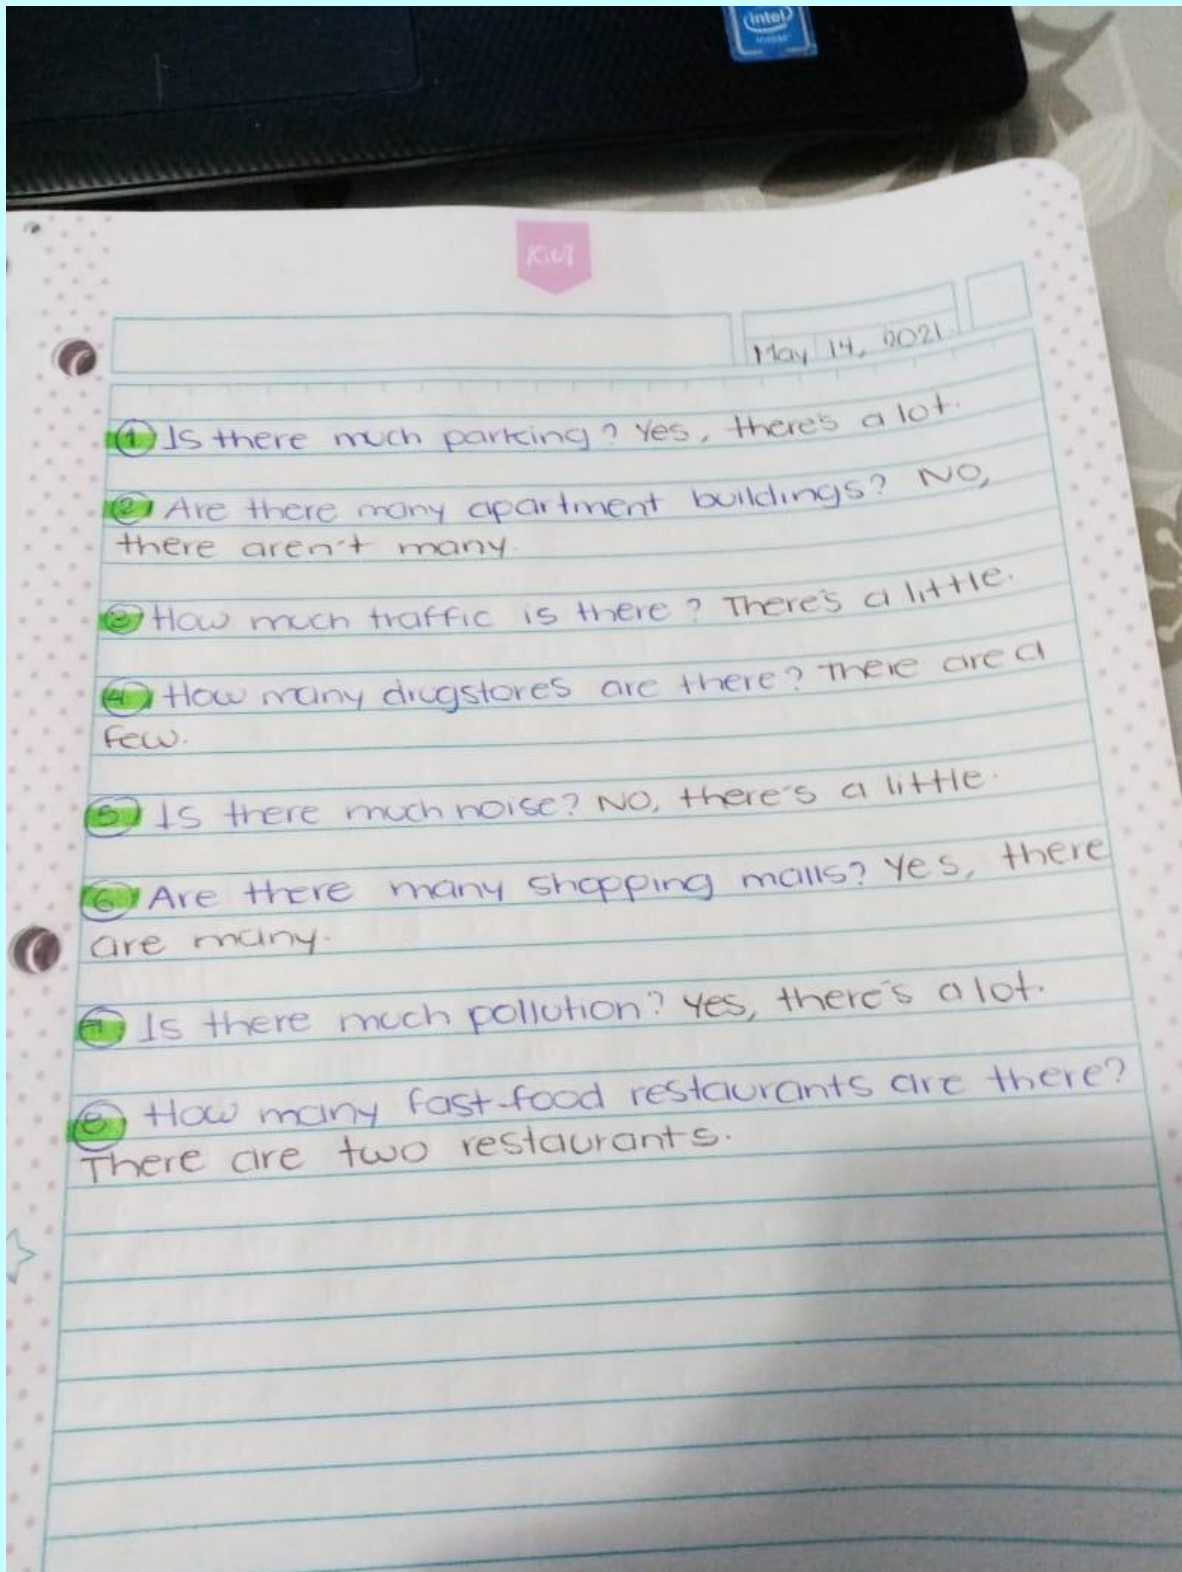 intel
inside
Kiut
May 14, 2021.
① Is there much parking? Yes, there's a lot.
② Are there many apartment buildings? No,
there aren't many.
③ How much traffic is there? There's a little.
④ How many drugstores are there? There are a
few.
⑤ Is there much noise? No, there's a little.
⑥ Are there many shopping malls? Yes, there
are many.
⑦ Is there much pollution? Yes, there's a lot.
⑧ How many fast-food restaurants are there?
There are two restaurants.